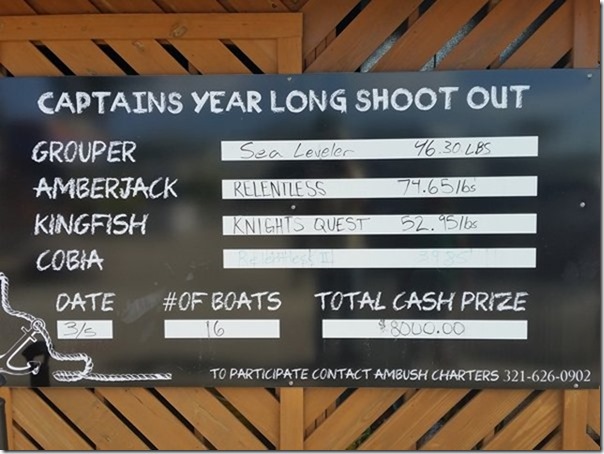 CAPTAINS YEAR LONG SHOOT OUT
GROUPER Sea Leveler 46.30 LBS
AMBERJACK RELENTLESS 74.65lbs
KINGFISH KNIGHTS QUEST 52.95lbs
COBIA
DATE #OF BOATS TOTAL CASH PRIZE
3/5 16 $8000.00
TO PARTICIPATE CONTACT AMBUSH CHARTERS 321-626-0902